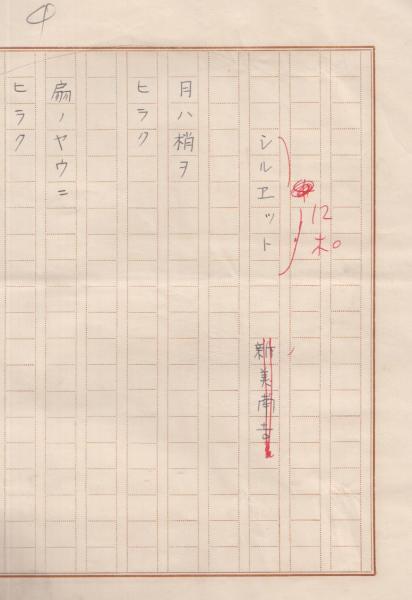 4
シルヱット
12
ホ。
新美南吉
月ハ梢ヲ
ヒラク
扇ノヤウニ
ヒラク